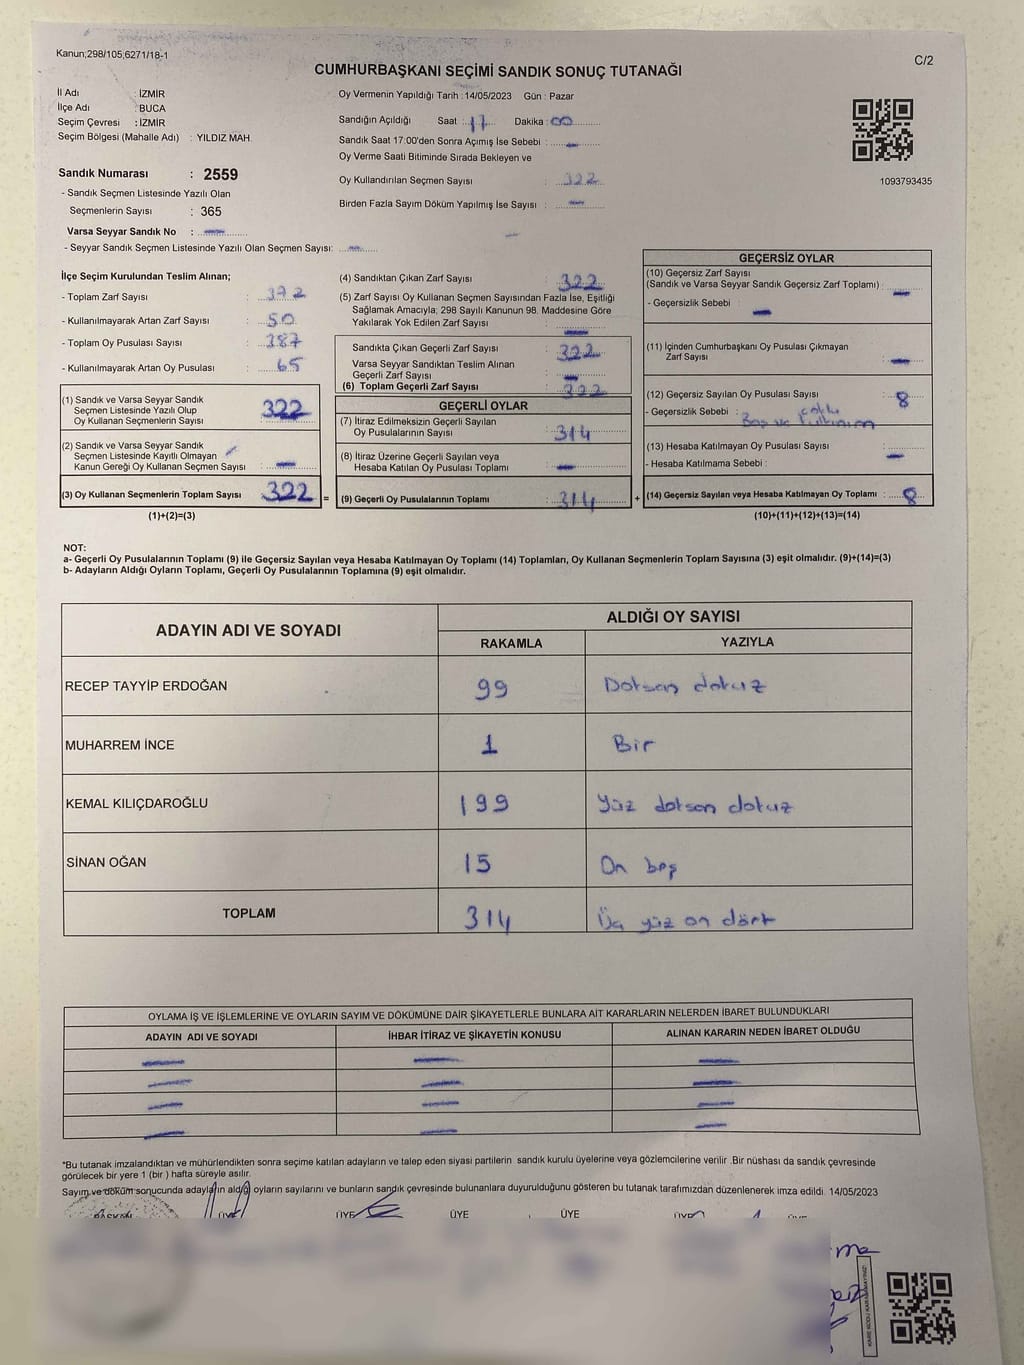 Kanun;298/105;6271/18-1
C/2
CUMHURBAŞKANI SEÇİMİ SANDIK SONUÇ TUTANAĞI
İl Adı : İZMİR
İlçe Adı : BUCA
Seçim Çevresi : İZMİR
Seçim Bölgesi (Mahalle Adı) : YILDIZ MAH.
Sandık Numarası : 2559
- Sandık Seçmen Listesinde Yazılı Olan
Seçmenlerin Sayısı : 365
Varsa Seyyar Sandık No :
- Seyyar Sandık Seçmen Listesinde Yazılı Olan Seçmen Sayısı:
Oy Vermenin Yapıldığı Tarih :14/05/2023 Gün : Pazar
Sandığın Açıldığı Saat : 17 Dakika : 00
Sandık Saat 17:00'den Sonra Açımış İse Sebebi :
Oy Verme Saati Bitiminde Sırada Bekleyen ve
Oy Kullandırılan Seçmen Sayısı : 322
Birden Fazla Sayım Döküm Yapılmış İse Sayısı :
1093793435
İlçe Seçim Kurulundan Teslim Alınan;
- Toplam Zarf Sayısı : 372
- Kullanılmayarak Artan Zarf Sayısı : 50
- Toplam Oy Pusulası Sayısı : 387
- Kullanılmayarak Artan Oy Pusulası : 65
(1) Sandık ve Varsa Seyyar Sandık
Seçmen Listesinde Yazılı Olup
Oy Kullanan Seçmenlerin Sayısı 322
(2) Sandık ve Varsa Seyyar Sandık
Seçmen Listesinde Kayıtlı Olmayan
Kanun Gereği Oy Kullanan Seçmen Sayısı
(3) Oy Kullanan Seçmenlerin Toplam Sayısı 322 =
(1)+(2)=(3)
(4) Sandıktan Çıkan Zarf Sayısı : 322
(5) Zarf Sayısı Oy Kullanan Seçmen Sayısından Fazla İse, Eşitliği
Sağlamak Amacıyla; 298 Sayılı Kanunun 98. Maddesine Göre
Yakılarak Yok Edilen Zarf Sayısı :
Sandıkta Çıkan Geçerli Zarf Sayısı : 322
Varsa Seyyar Sandıktan Teslim Alınan
Geçerli Zarf Sayısı :
(6) Toplam Geçerli Zarf Sayısı : 322
GEÇERLİ OYLAR
(7) İtiraz Edilmeksizin Geçerli Sayılan
Oy Pusulalarının Sayısı : 314
(8) İtiraz Üzerine Geçerli Sayılan veya
Hesaba Katılan Oy Pusulası Toplamı :
(9) Geçerli Oy Pusulalarının Toplamı : 314 +
GEÇERSİZ OYLAR
(10) Geçersiz Zarf Sayısı
(Sandık ve Varsa Seyyar Sandık Geçersiz Zarf Toplamı) :
- Geçersizlik Sebebi :
(11) İçinden Cumhurbaşkanı Oy Pusulası Çıkmayan
Zarf Sayısı :
(12) Geçersiz Sayılan Oy Pusulası Sayısı : 8
- Geçersizlik Sebebi : Boş ve
(13) Hesaba Katılmayan Oy Pusulası Sayısı :
- Hesaba Katılmama Sebebi :
(14) Geçersiz Sayılan veya Hesaba Katılmayan Oy Toplamı : 8
(10)+(11)+(12)+(13)=(14)
NOT:
a- Geçerli Oy Pusulalarının Toplamı (9) ile Geçersiz Sayılan veya Hesaba Katılmayan Oy Toplamı (14) Toplamları, Oy Kullanan Seçmenlerin Toplam Sayısına (3) eşit olmalıdır. (9)+(14)=(3)
b- Adayların Aldığı Oyların Toplamı, Geçerli Oy Pusulalarının Toplamına (9) eşit olmalıdır.
ADAYIN ADI VE SOYADI
ALDIĞI OY SAYISI
RAKAMLA YAZIYLA
RECEP TAYYİP ERDOĞAN 99 Doksan dokuz
MUHARREM İNCE 1 Bir
KEMAL KILIÇDAROĞLU 199 Yüz doksan dokuz
SİNAN OĞAN 15 On beş
TOPLAM 314 Üç yüz on dört
OYLAMA İŞ VE İŞLEMLERİNE VE OYLARIN SAYIM VE DÖKÜMÜNE DAİR ŞİKAYETLERLE BUNLARA AİT KARARLARIN NELERDEN İBARET BULUNDUKLARI
ADAYIN ADI VE SOYADI İHBAR İTİRAZ VE ŞİKAYETİN KONUSU ALINAN KARARIN NEDEN İBARET OLDUĞU
*Bu tutanak imzalandıktan ve mühürlendikten sonra seçime katılan adayların ve talep eden siyasi partilerin sandık kurulu üyelerine veya gözlemcilerine verilir .Bir nüshası da sandık çevresinde
görülecek bir yere 1 (bir ) hafta süreyle asılır.
Sayım ve döküm sonucunda adayların aldığı oyların sayılarını ve bunların sandık çevresinde bulunanlara duyurulduğunu gösteren bu tutanak tarafımızdan düzenlenerek imza edildi. 14/05/2023
BAŞKAN ÜYE ÜYE ÜYE ÜYE ÜYE ÜYE